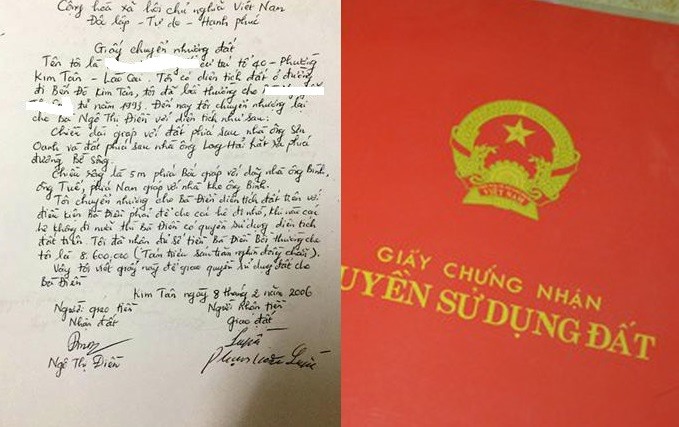 Cộng hoà xã hội chủ nghĩa Việt Nam
Độc lập - Tự do - Hạnh phúc
Giấy chuyển nhượng đất
Tên tôi là cư trú tổ 40 - Phường
Kim Tân - Lào Cai. Tôi có diện tích đất ở đường
đi Bến Đá Kim Tân, tôi đã bồi thường cho
từ năm 1993. Đến nay tôi chuyển nhượng lại
cho Bà Ngô Thị Điền với diện tích như sau:
Chiều dài giáp với đất phía sau nhà ông Sơn
Oanh và đất phía sau nhà ông Long Hải kết ra phía
đường Bờ Sông.
Chiều rộng là 5m phía Bắc giáp với dãy nhà ông Bình,
ông Tuế, phía Nam giáp với nhà kho ông Bình.
Tôi chuyển nhượng cho Bà Điền diện tích đất trên với
điều kiện Bà Điền phải để cho các hộ đi nhờ, khi nào các
hộ không đi nữa thì Bà Điền có quyền sử dụng diện
tích đất trên. Tôi đã nhận đủ số tiền Bà Điền Bồi thường cho
tôi là 8.600.000 (Tám triệu sáu trăm nghìn đồng chẵn).
Vậy tôi viết giấy này để giao quyền sử dụng đất cho
Bà Điền
Kim Tân ngày 8 tháng 2 năm 2006
Người giao tiền Người nhận tiền
Nhận đất Giao đất
Ngô Thị Điền
VIỆT NAM
GIẤY CHỨNG NHẬN
UYỀN SỬ DỤNG ĐẤT